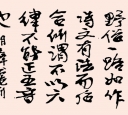 野俗一路如作
诗文有法而后
合所谓不以六
律不能正五音
也